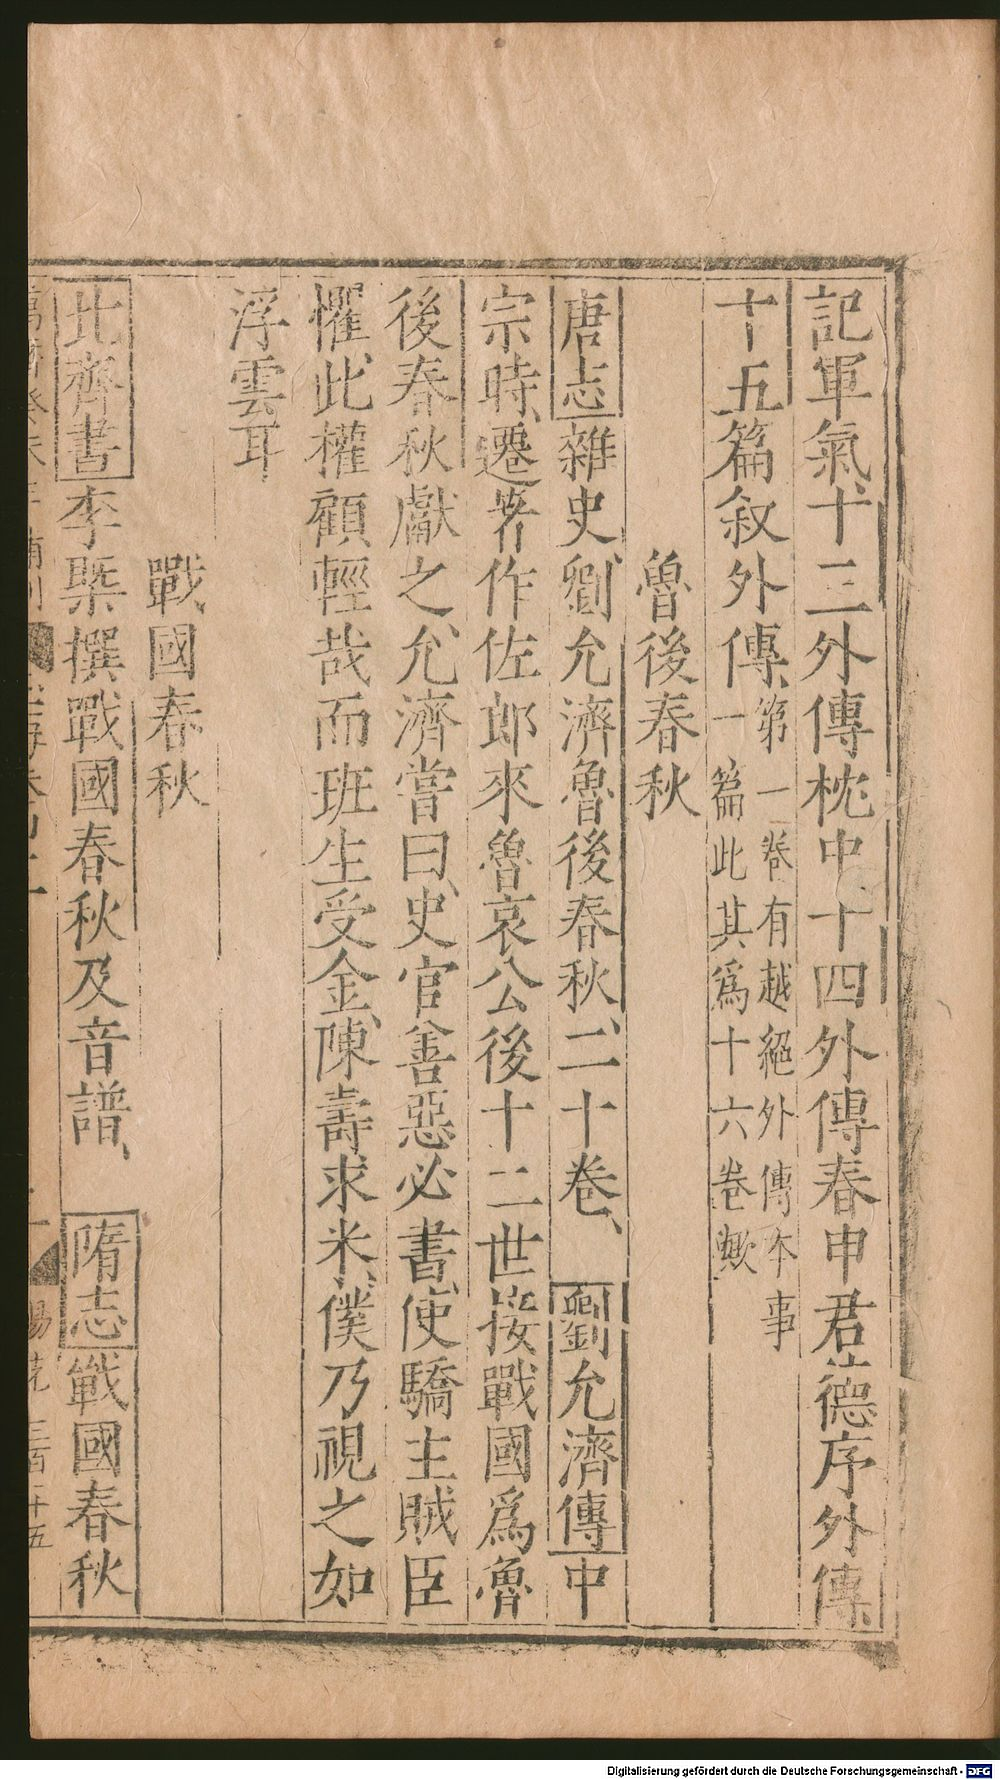 記軍氣、十三外傳枕中、十四外傳春申君、德序外傳、
十五篇叙外傳、第一卷有越絕外傳本事
一篇此其為十六卷歟
魯後春秋
唐志雜史、劉允濟魯後春秋、二十卷、劉允濟傳中
宗時、遷著作佐郎來魯哀公後十二世接戰國為魯
後春秋獻之、允濟嘗曰、史官善惡必書、使驕主賊臣
懼、此權顧輕哉而班生受金、陳壽求米、僕乃視之如
浮雲耳
戰國春秋
北齊書李槩撰戰國春秋及音譜、隋志戰國春秋
Digitalisierung gefördert durch die Deutsche Forschungsgemeinschaft - DFG